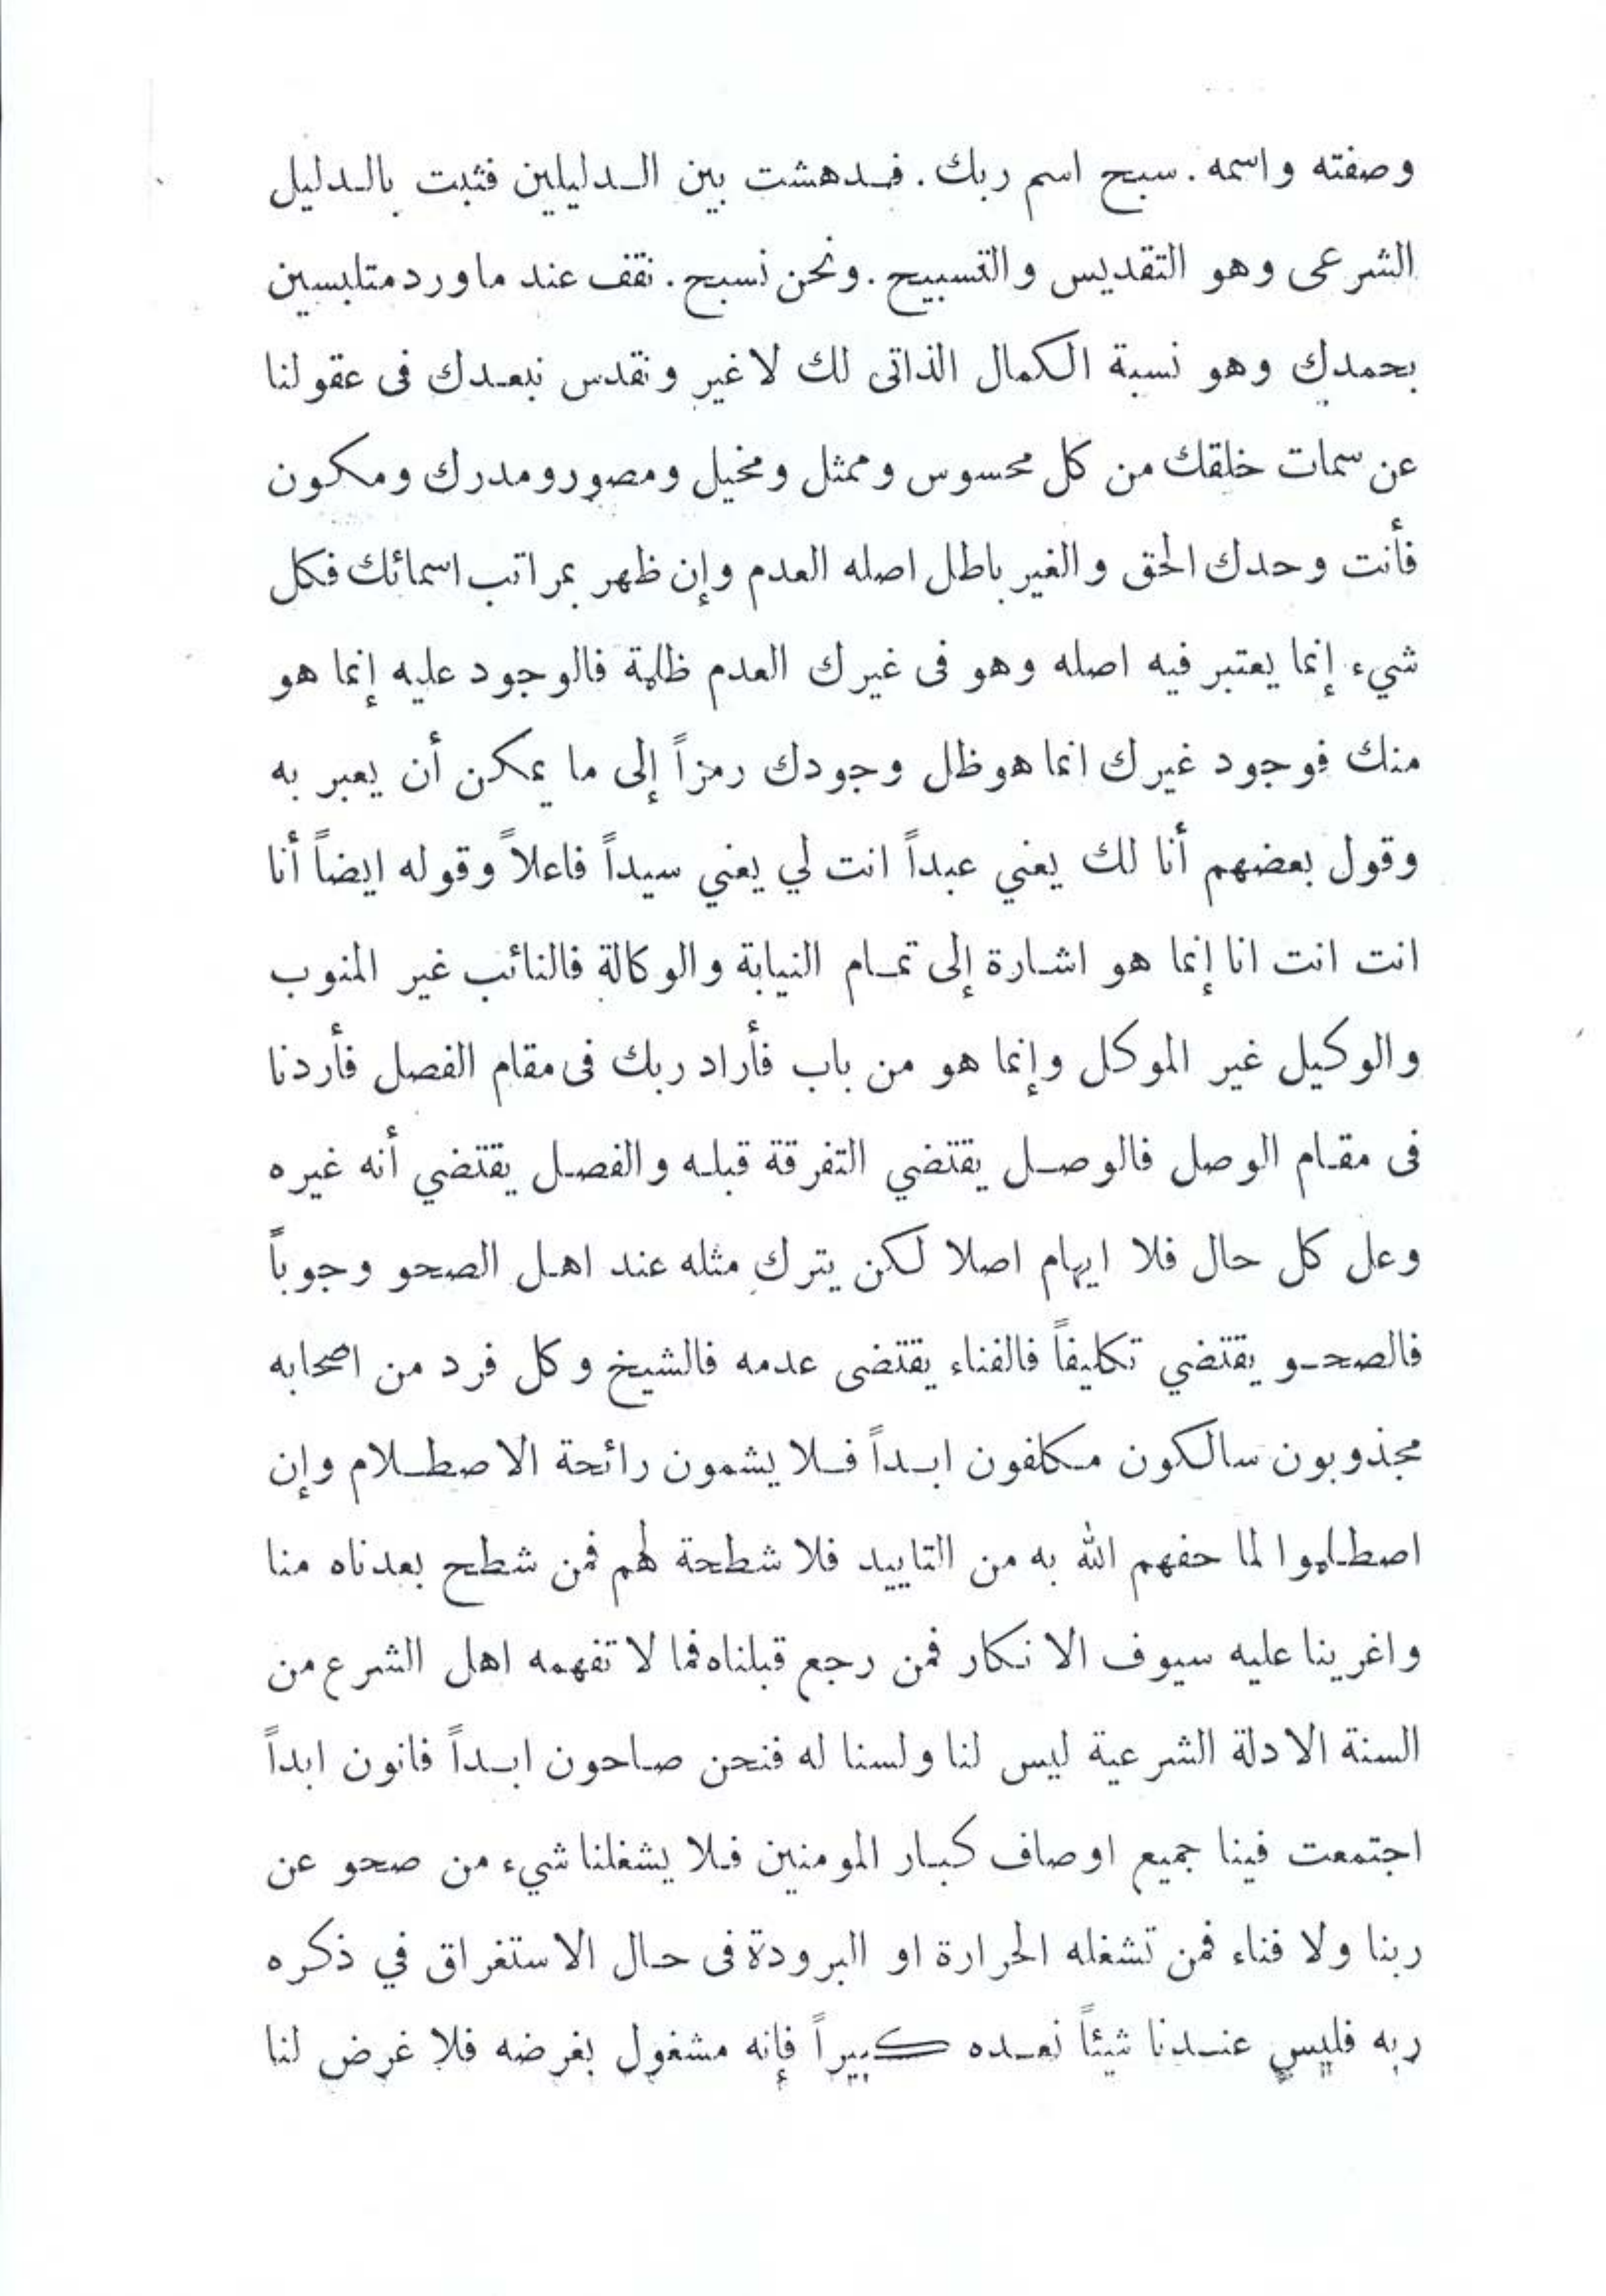 وصفته واسمه . سبح اسم ربك . فدهشت بين الدليلين فثبت بالدليل
الشرعى وهو التقديس والتسبيح . ونحن نسبح . نقف عند ما ورد متلبسين
بحمدك وهو نسبة الكمال الذاتى لك لا غير ونقدس نبعدك فى عقولنا
عن سمات خلقك من كل محسوس وممثل ومخيل ومصور ومدرك ومكون
فأنت وحدك الحق والغير باطل اصله العدم وإن ظهر بمراتب اسمائك فكل
شيء إنما يعتبر فيه اصله وهو فى غيرك العدم ظلمة فالوجود عليه إنما هو
منك فوجود غيرك انما هو ظل وجودك رمزاً إلى ما يمكن أن يعبر به
وقول بعضهم أنا لك يعني عبداً انت لي يعني سيداً فاعلاً وقوله ايضاً أنا
انت انت انا إنما هو اشارة إلى تمام النيابة والوكالة فالنائب غير المنوب
والوكيل غير الموكل وإنما هو من باب فأراد ربك فى مقام الفصل فأردنا
فى مقام الوصل فالوصل يقتضي التفرقة قبله والفصل يقتضي أنه غيره
وعل كل حال فلا ايهام اصلا لكن يترك مثله عند اهل الصحو وجوباً
فالصحو يقتضي تكليفاً فالفناء يقتضى عدمه فالشيخ وكل فرد من اصحابه
مجذوبون سالكون مكلفون ابداً فلا يشمون رائحة الاصطلام وإن
اصطلموا لما حفهم الله به من التاييد فلا شطحة لهم فمن شطح بعدناه منا
واغرينا عليه سيوف الانكار فمن رجع قبلناه فما لا تفهمه اهل الشرع من
السنة الادلة الشرعية ليس لنا ولسنا له فنحن صاحون ابداً فانون ابداً
اجتمعت فينا جميع اوصاف كبار المومنين فلا يشغلنا شيء من صحو عن
ربنا ولا فناء فمن تشغله الحرارة او البرودة فى حال الاستغراق في ذكره
ربه فليس عندنا شيئاً نعده كبيراً فإنه مشغول بغرضه فلا غرض لنا